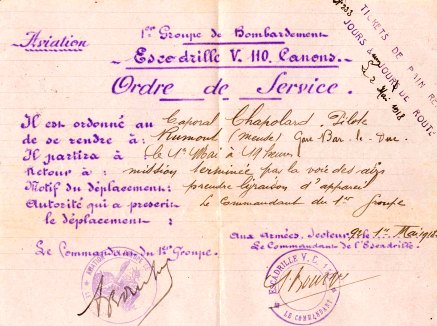 Aviation
1er Groupe de Bombardement
Escadrille V. 110. Canons.
Ordre de Service.
TICKETS DE PAIN RE
JOURS JOURS DE ROUTE
2 Mai 1918
Il est ordonné au Caporal Chapolard. Pilote
de se rendre à: Rumont (Meuse) Gare Bar. le. Duc.
Il partira à le 1er Mai à 19 heures
Retour à : mission terminée par la voie des airs
Motif du déplacement: prendre livraison d'appareil
Autorité qui a prescrit le Commandant du 1er Groupe
le déplacement :
Aux Armées, Secteur le 1er Mai 1918
Le Commandant du 1er Groupe.
Le Commandant de l'Escadrille.
ESCADRILLE V.C. 110
LE COMMANDANT